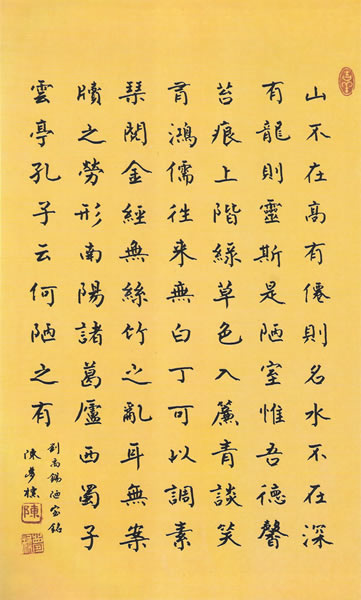 山不在高有僊則名水不在深
有龍則靈斯是陋室惟吾德馨
苔痕上階綠草色入簾青談笑
有鴻儒往来無白丁可以調素
琹閱金經無絲竹之亂耳無案
牘之勞形南陽諸葛廬西蜀子
雲亭孔子云何陋之有
劉禹錫陋室銘
陳夢
陳